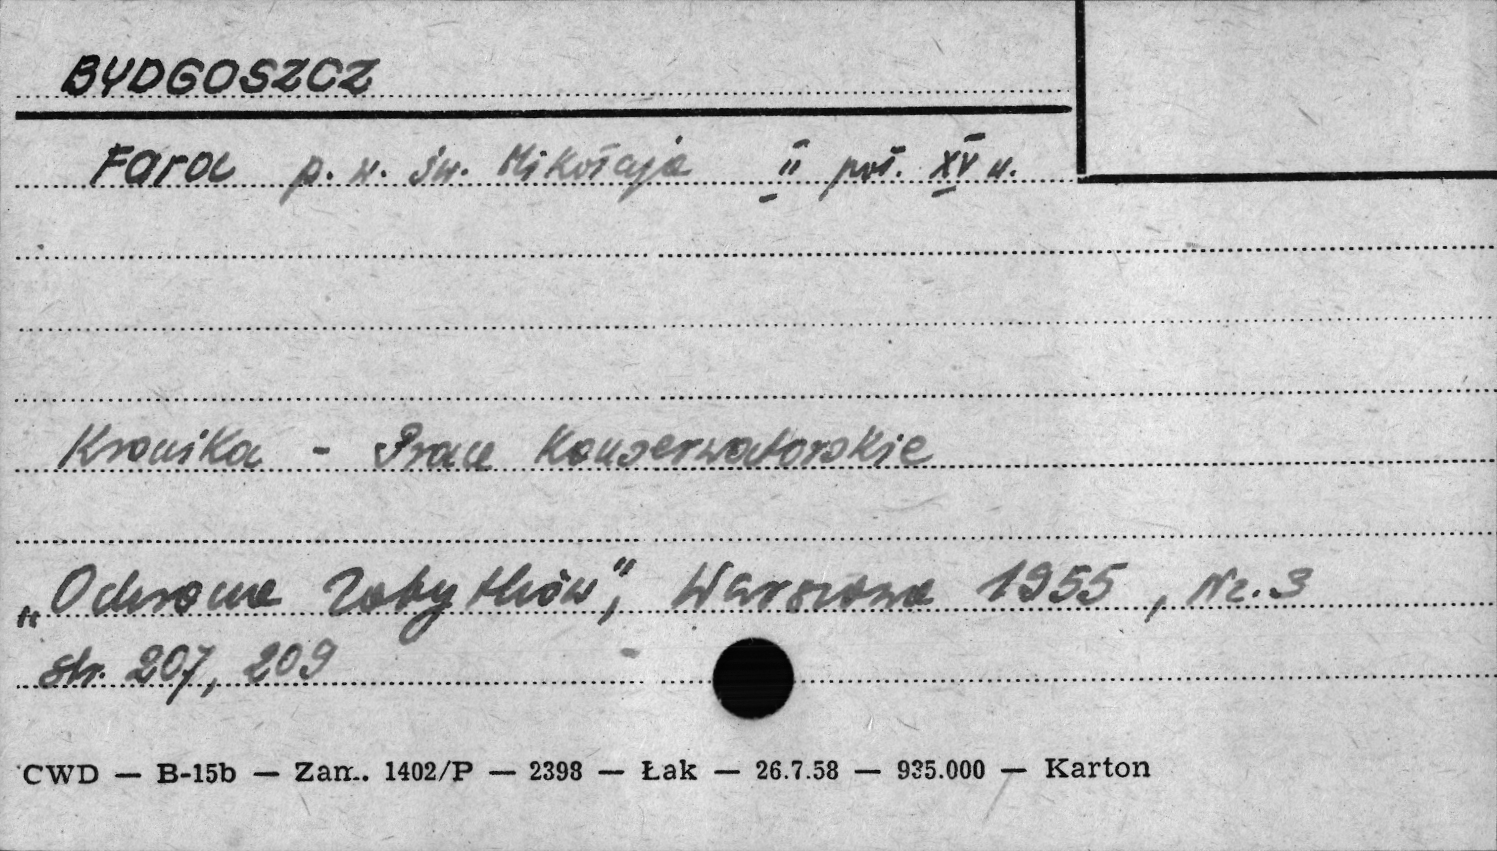 BYDGOSZCZ
Fara p. w. św. Mikołaja II poł. XV w.
Kronika - Prace Konserwatorskie
„Ochrona Zabytków", Warszawa 1955, Nr. 3
str. 207, 209
CWD — B-15b — Zam. 1402/P — 2398 — Łak — 26.7.58 — 935.000 — Karton